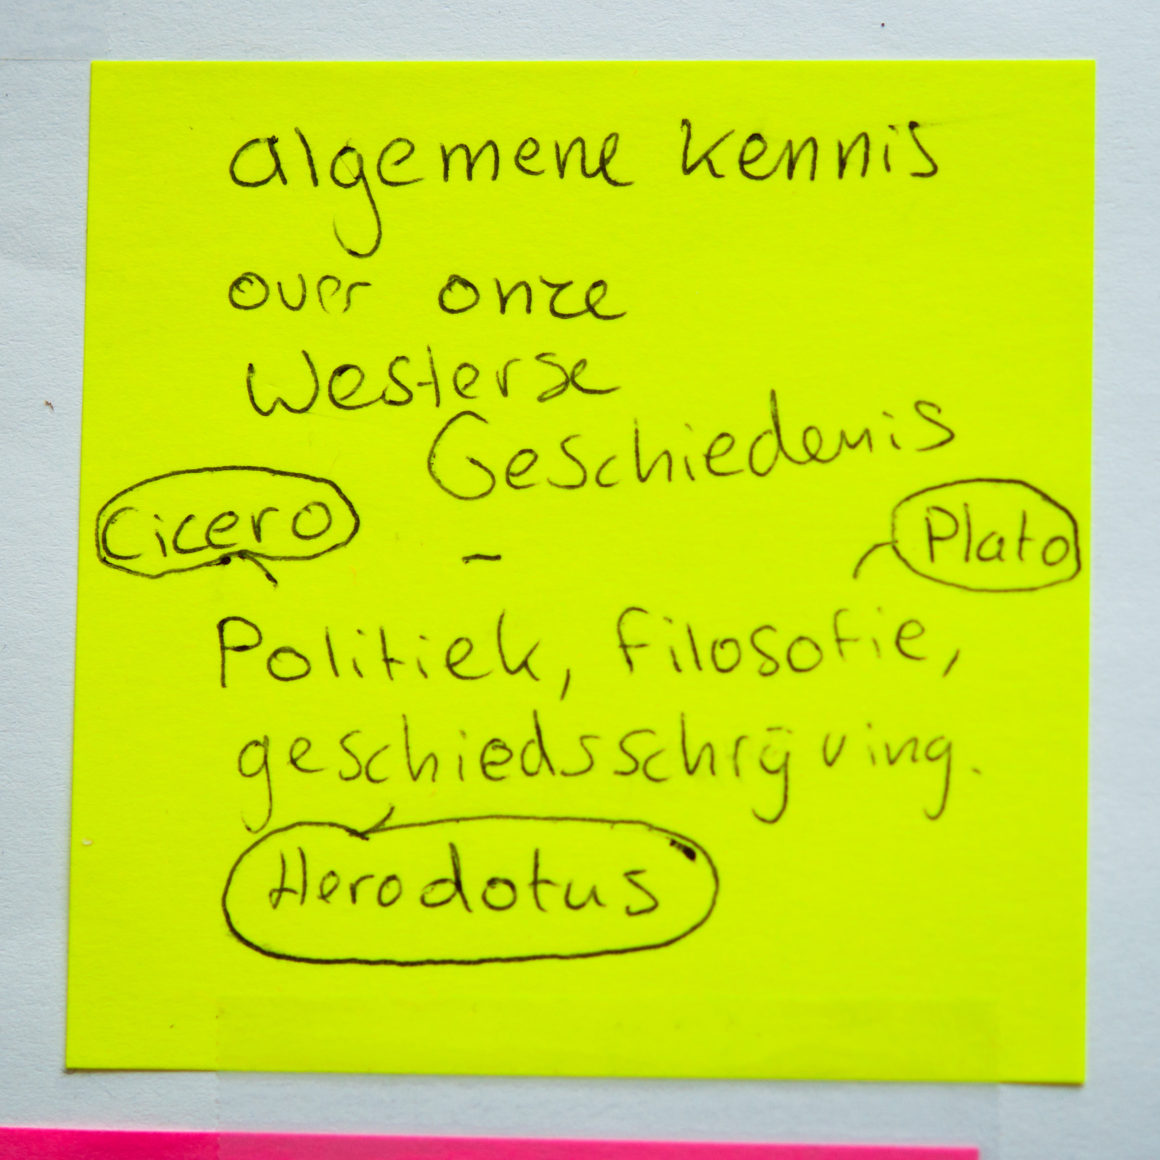 algemene kennis
over onze
Westerse
Geschiedenis
Cicero - Plato
Politiek, filosofie,
geschiedsschrijving.
Herodotus